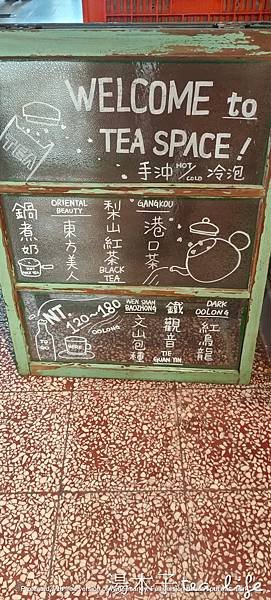 TEA
WELCOME to
TEA SPACE!
手沖 HOT / COLD 冷泡
鍋煮奶
ORIENTAL BEAUTY
東方美人
梨山紅茶
BLACK TEA
GANGKOU
港口茶
NT. 120～180
TO GO
HERE
OOLONG
WEN SHAN BAOZHONG
文山包種
鐵觀音
TIE GUAN YIN
DARK OOLONG
紅烏龍
tea life